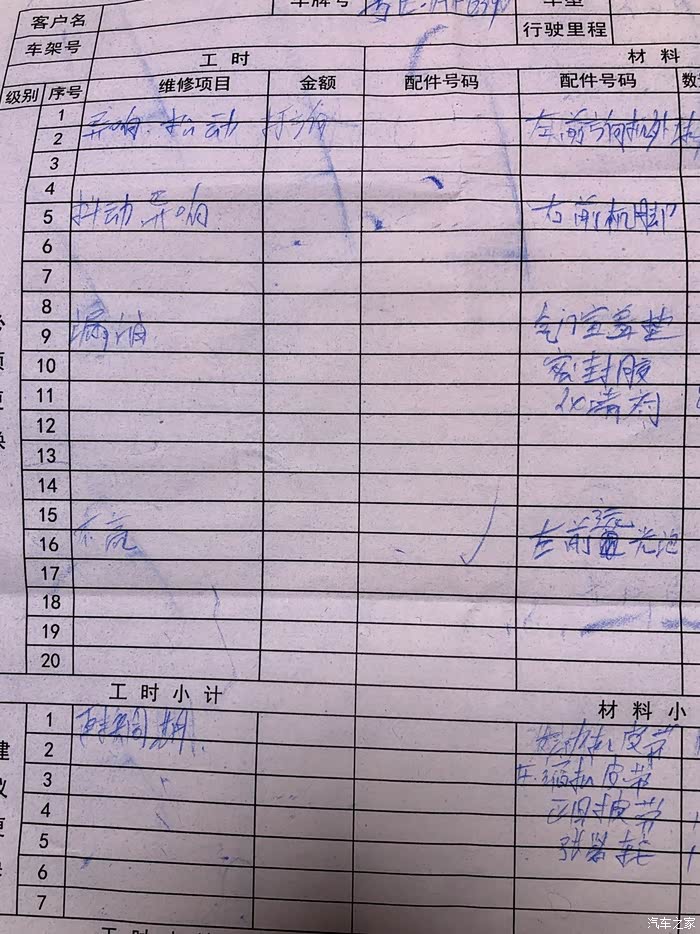 客户名 车牌号
车架号 行驶里程
工时 材料
级别 序号 维修项目 金额 配件号码 配件号码 数
1
2 异响.松动 打方向 左前方向机外球
3
4
5 抖动异响 右前机脚
6
7
8
9 漏油 气门室盖垫
10 密封胶
11
12
13
14
15
16 不亮 左前 光泡
17
18
19
20
工时小计 材料小
1 更换周期
2 发动机皮带
3 压缩机皮带
4 正时皮带
5 张紧轮
6
7
汽车之家